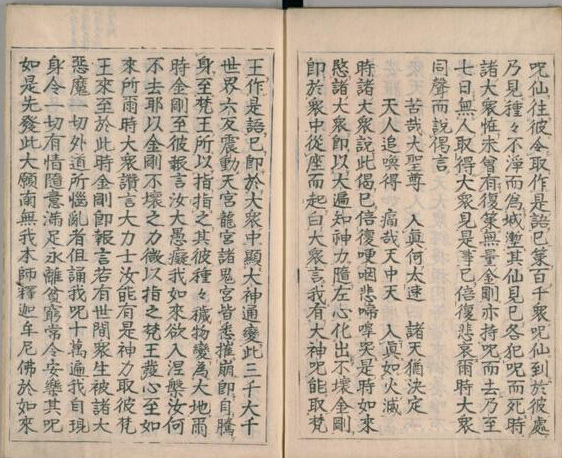 呪仙往彼令取作是語已策百千衆呪仙到於彼處
乃見種々不淨而爲城塹其仙見已各犯呪而死時
諸大衆惟未曾有復策無量金剛亦持呪而去乃至
七日無人取得大衆見是事已倍復悲哀爾時大衆
同聲而說偈言
苦哉大聖尊　入眞何太速　諸天猶決定
天人追喚得　痛哉天中天　入眞如火滅
時諸大衆說此偈已倍復哽咽悲啼嘷哭是時如來
愍諸大衆即以大遍如神力隨左心化出不壞金剛
即於衆中從座而起白大衆言我有大神呪能取梵
王作是語已即於大衆中顯大神通變此三千大千
世界六反震動天宮龍宮諸鬼宮皆悉摧崩即自騰
身至梵王所以指指之其彼種々穢物變爲大地爾
時金剛至彼報言汝大愚癡我如來欲入涅槃汝何
不去耶以金剛不壞之力微以指之梵王發心至如
來所爾時大衆讚言大力士汝能有是神力取彼梵
王來至於此時金剛即報言若有世間衆生被諸大
惡魔一切外道所惱亂者但誦我呪十萬遍我自現
身令一切有情隨意滿足永離貧窮常令安樂其呪
如是先發此大願南無我本師釋迦牟尼佛於如來